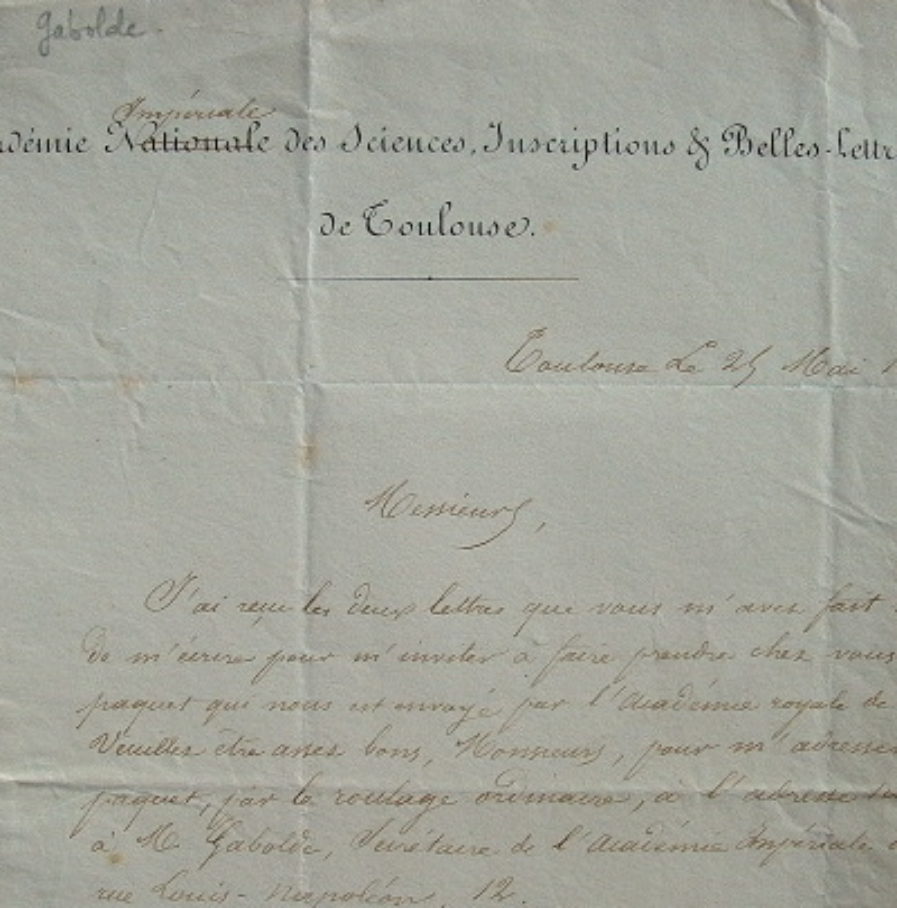 Gabolde.
Impériale
adémie Nationale des Sciences, Inscriptions & Belles-Lettr
de Toulouse.
Toulouse Le 25 Mai 1
Messieurs,
J'ai reçu les deux lettres que vous m'avez fait
de m'écrire pour m'inviter à faire prendre chez vous
paquet qui nous est envoyé par l'Académie royale de
Veuillez être assez bons, Messieurs, pour m'adresser
paquet, par le roulage ordinaire, à l'adresse
à M. Gabolde, Secrétaire de l'Académie Impériale
rue Louis-Napoléon, 12.